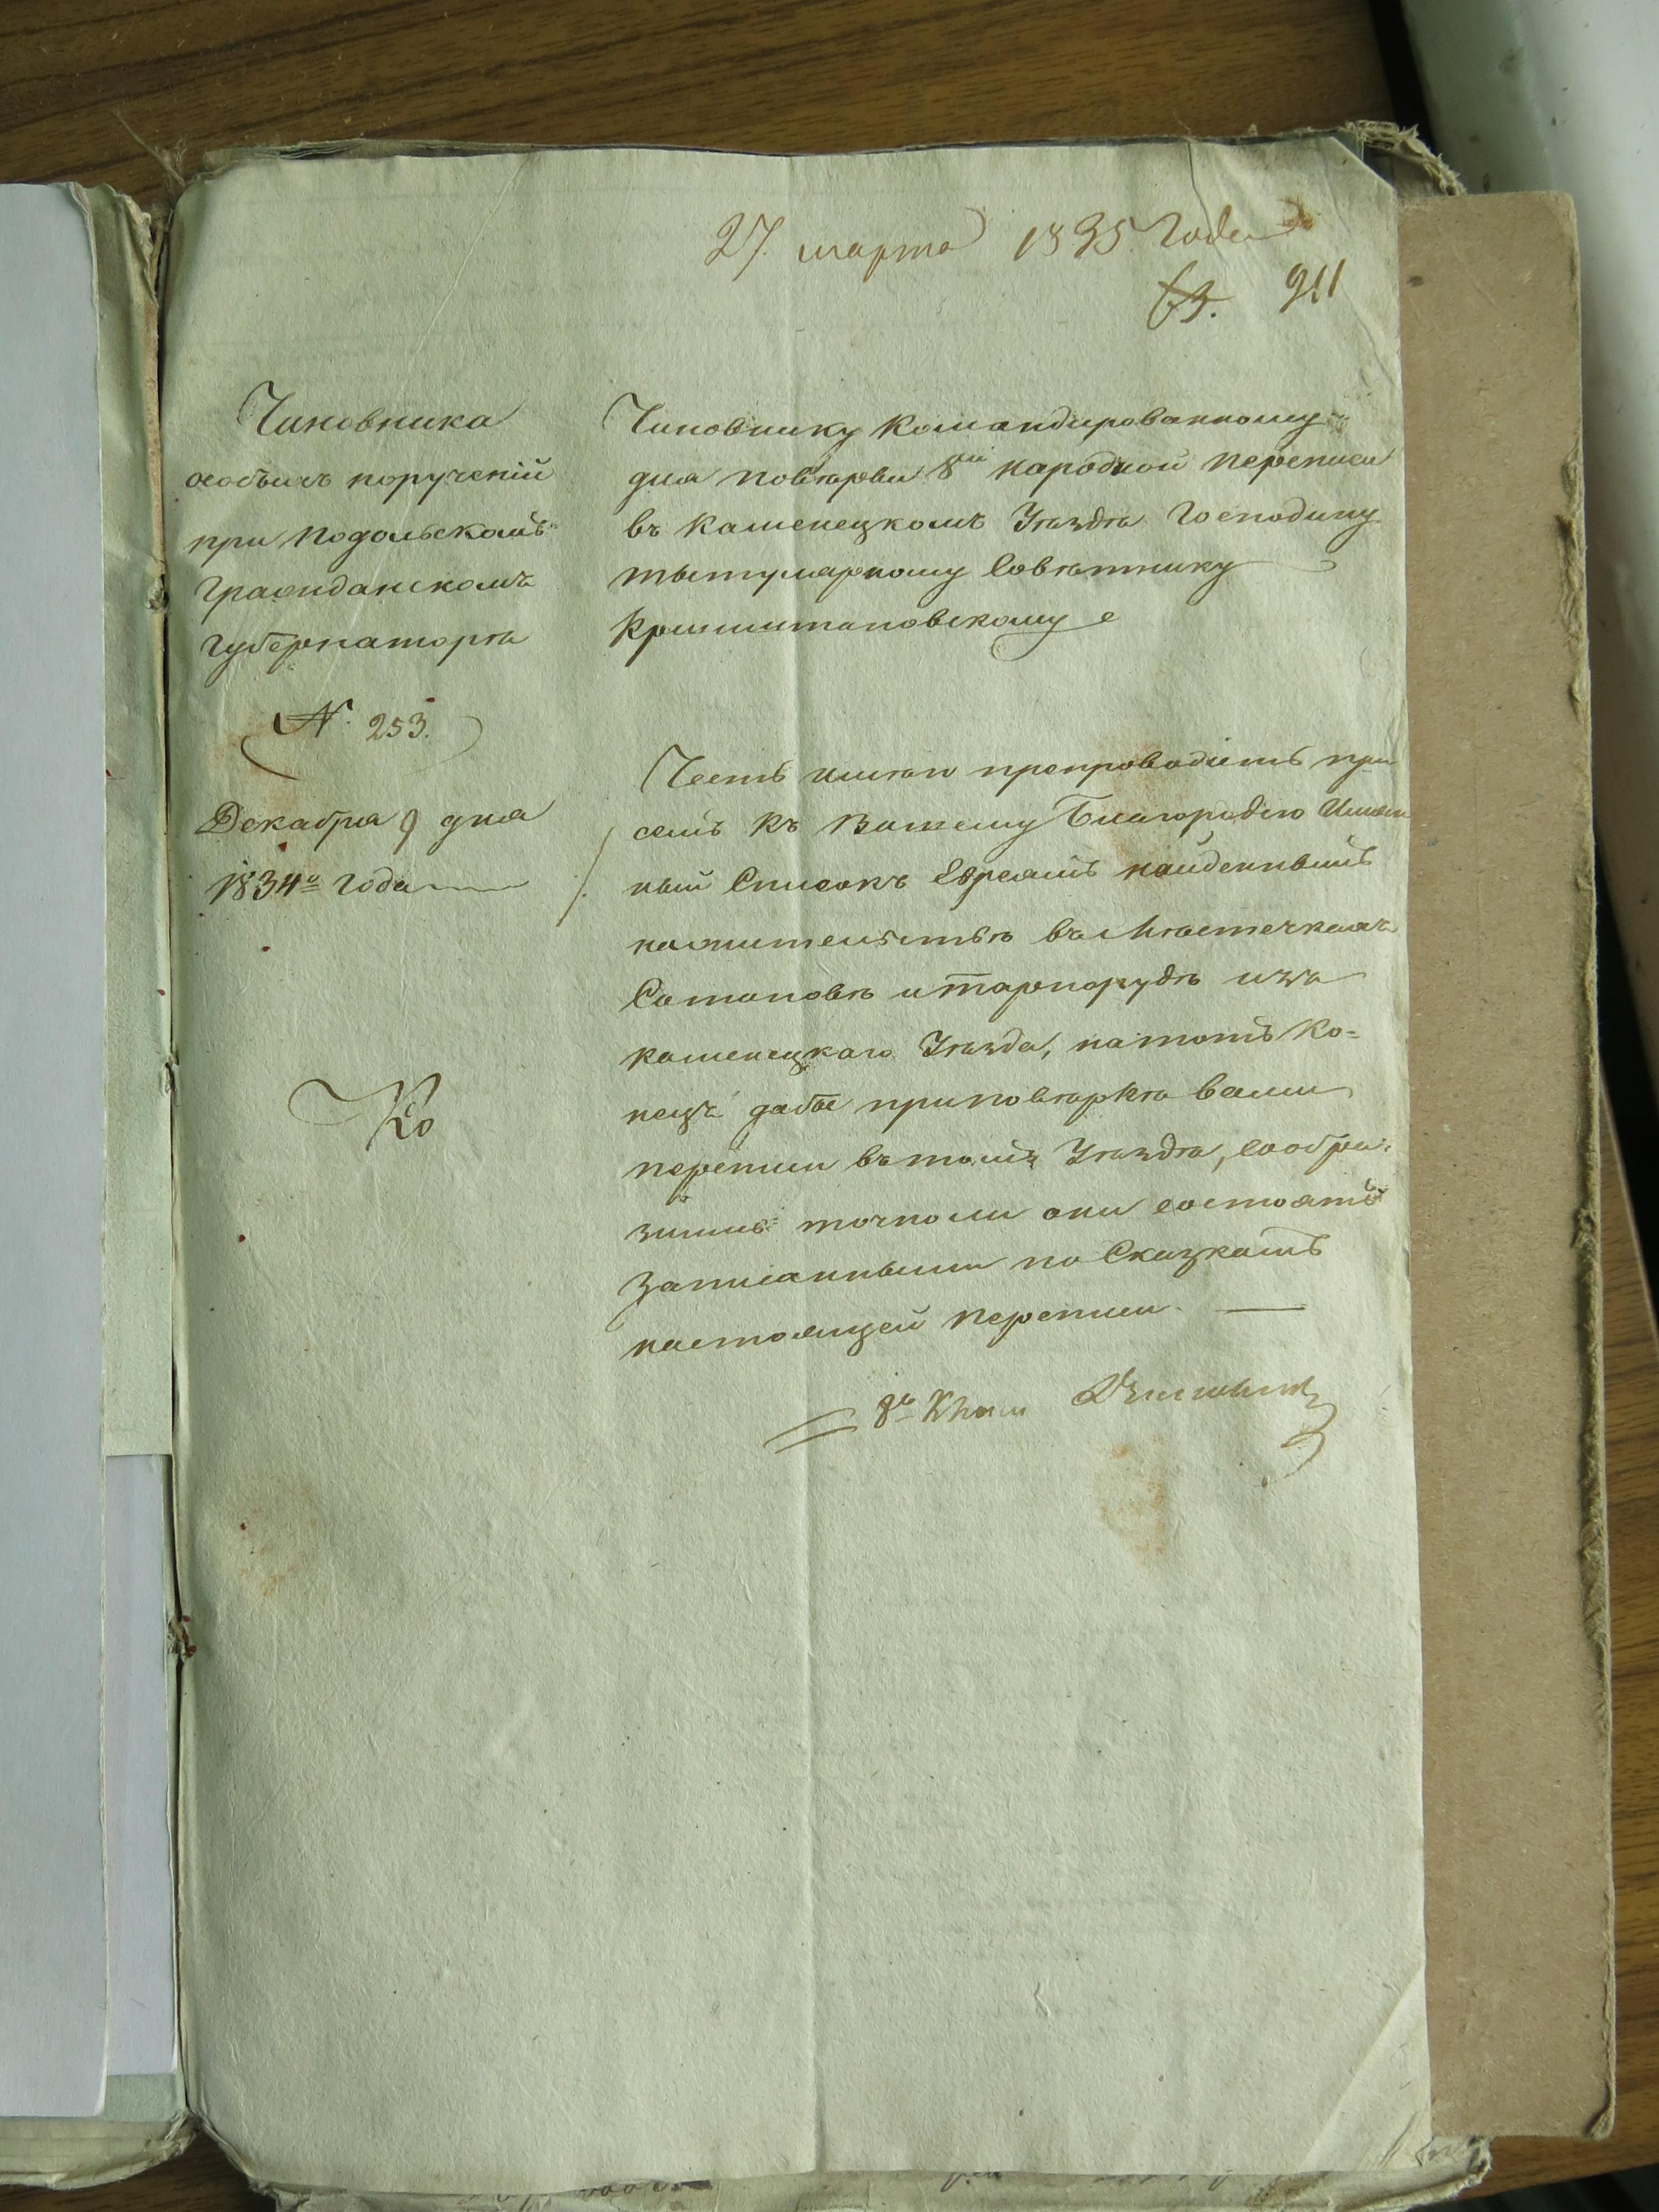 27. марта 1835 года
63. 911
Чиновника
особыхъ порученій
при Подольскомъ
Гражданскомъ
Губернаторѣ
N. 253.
Декабря 9 дня
1834го года
Ко
Чиновнику Командированному
для повѣрки 8ой народной переписи
въ Каменецкомъ Уѣздѣ Господину
тытулярному Совѣтнику
Кришштановскому
Честь имѣю препроводить при
семъ къ Вашему Благородію Имян
ный Списокъ Евреямъ найденнымъ
на жительствѣ въ Мѣстечкахъ
Сатановѣ и Тарнорудѣ изъ
Каменецкаго Уѣзда, на тотъ Ко=
нецъ дабы при повѣркѣ вами
переписи въ томъ Уѣздѣ, сообра=
зить точно ли они состоятъ
записанными по Сказкамъ
настоящей переписи.